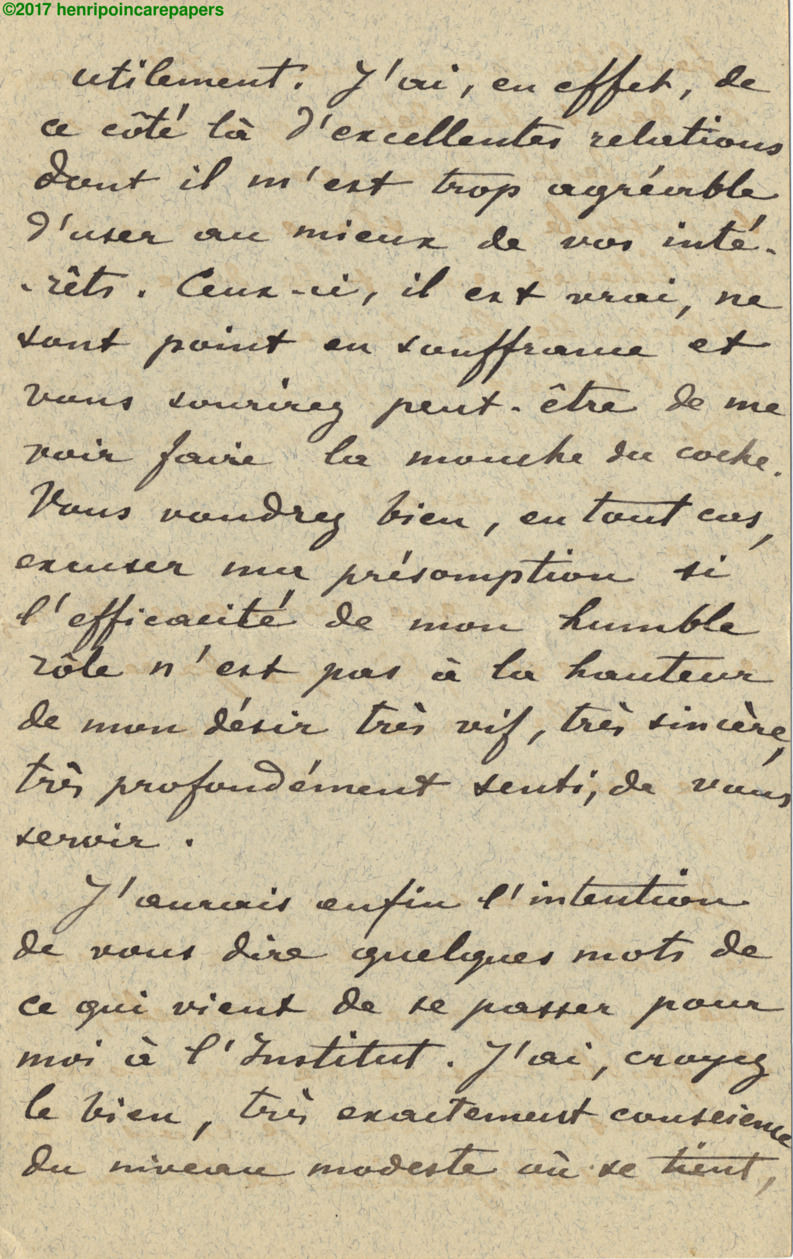 ©2017 henripoincarepapers
utilement. J'ai, en effet, de
ce côté là d'excellentes relations
dont il m'est trop agréable
d'user au mieux de vos inté-
-rêts. Ceux-ci, il est vrai, ne
sont point en souffrance et
vous sourirez peut-être de me
voir faire la mouche du coche.
Vous voudrez bien, en tout cas,
excuser ma présomption si
l'efficacité de mon humble
rôle n'est pas à la hauteur
de mon désir très vif, très sincère,
très profondément senti, de vous
servir.
J'aurais enfin l'intention
de vous dire quelques mots de
ce qui vient de se passer pour
moi à l'Institut. J'ai, croyez
le bien, très exactement conscience
du niveau modeste où se tient,